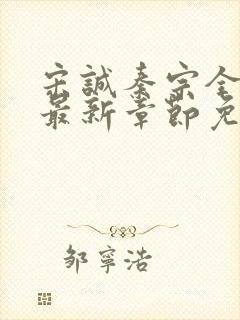 宋誠秦宗全
最新章節免
鄒寧浩